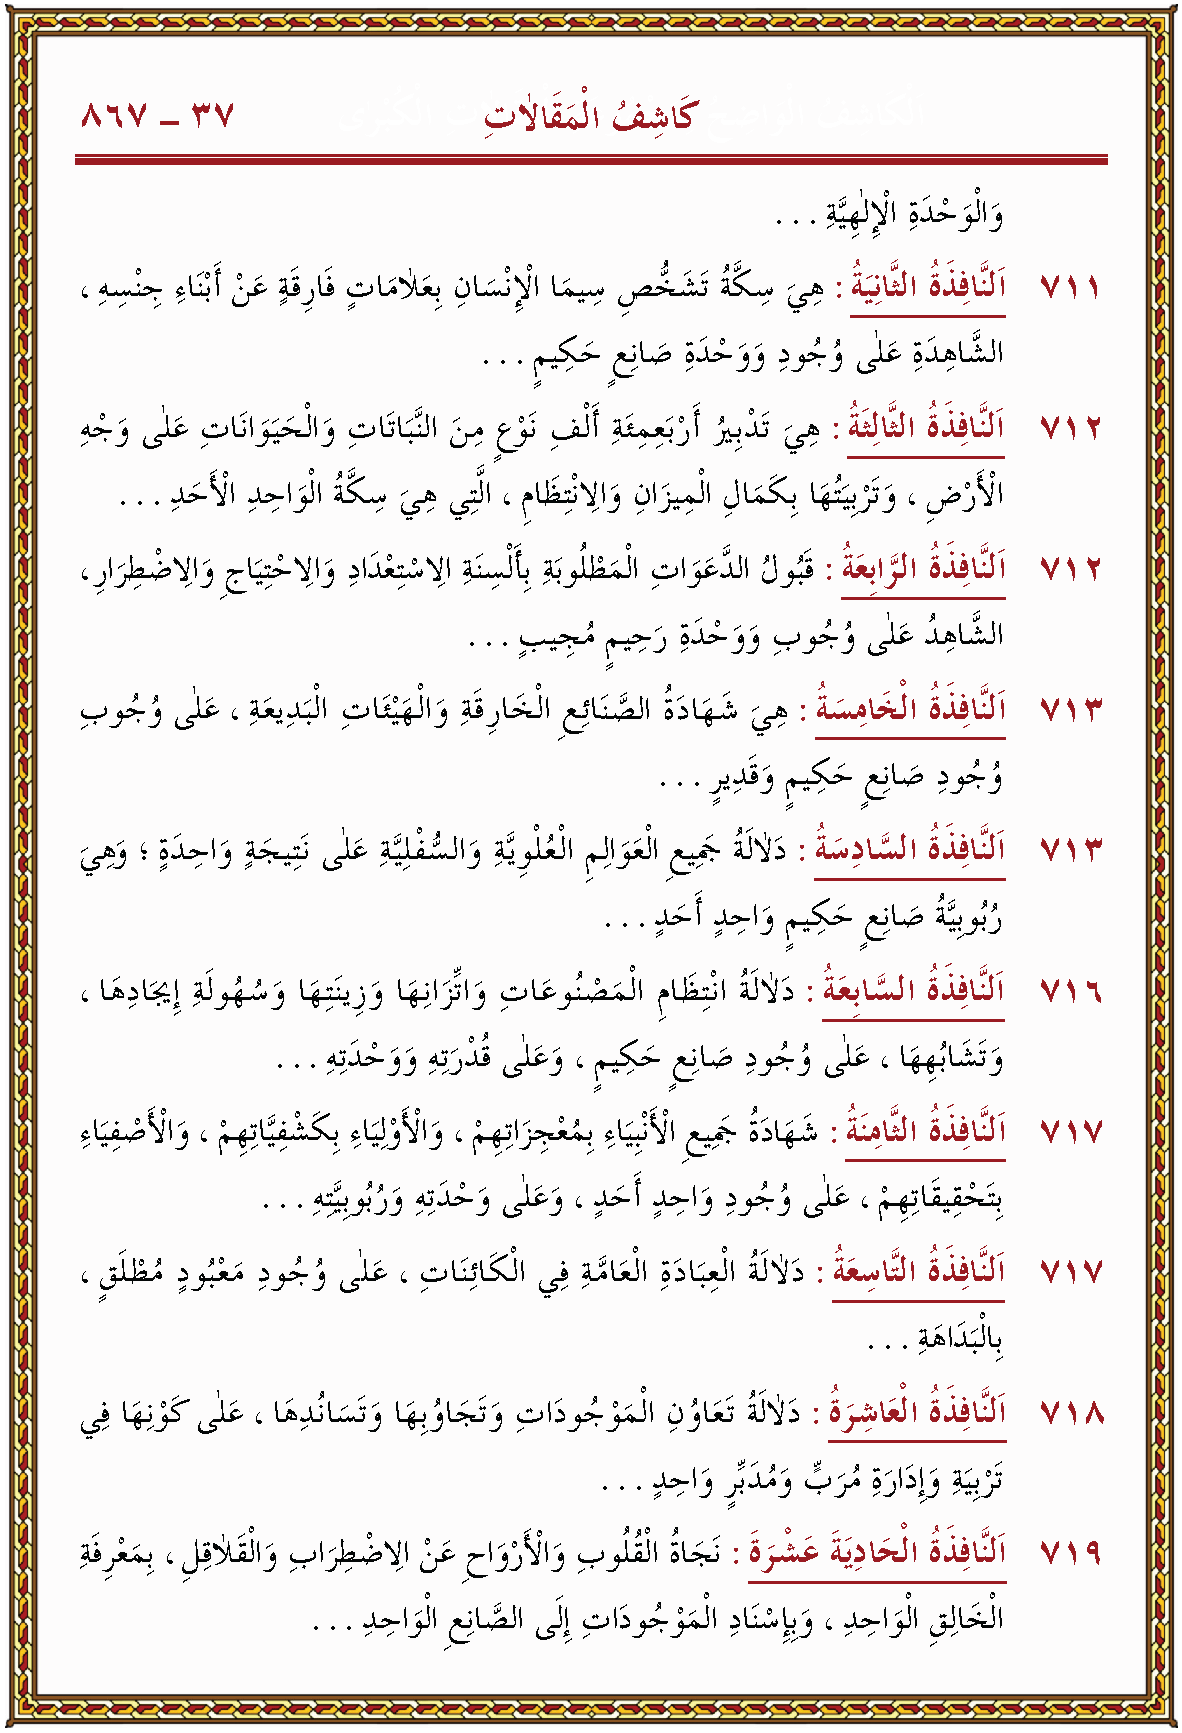 كَاشِفُ الْمَقَالاٰتِ ٣٧ ــ ٨٦٧
وَالْوَحْدَةِ الْإِلٰهِيَّةِ . . .
٧١١ اَلنَّافِذَةُ الثَّانِيَةُ : هِيَ سِكَّةُ تَشَخُّصِ سِيمَا الْإِنْسَانِ بِعَلاٰمَاتٍ فَارِقَةٍ عَنْ أَبْنَاءِ جِنْسِهِ ،
الشَّاهِدَةِ عَلٰى وُجُودِ وَوَحْدَةِ صَانِعٍ حَكِيمٍ . . .
٧١٢ اَلنَّافِذَةُ الثَّالِثَةُ : هِيَ تَدْبِيرُ أَرْبَعِمِئَةِ أَلْفِ نَوْعٍ مِنَ النَّبَاتَاتِ وَالْحَيَوَانَاتِ عَلٰى وَجْهِ
الْأَرْضِ ، وَتَرْبِيَتُهَا بِكَمَالِ الْمِيزَانِ وَالِانْتِظَامِ ، الَّتِي هِيَ سِكَّةُ الْوَاحِدِ الْأَحَدِ . . .
٧١٢ اَلنَّافِذَةُ الرَّابِعَةُ : قَبُولُ الدَّعَوَاتِ الْمَطْلُوبَةِ بِأَلْسِنَةِ الِاسْتِعْدَادِ وَالِاحْتِيَاجِ وَالِاضْطِرَارِ ،
الشَّاهِدُ عَلٰى وُجُوبِ وَوَحْدَةِ رَحِيمٍ مُجِيبٍ . . .
٧١٣ اَلنَّافِذَةُ الْخَامِسَةُ : هِيَ شَهَادَةُ الصَّنَائِعِ الْخَارِقَةِ وَالْهَيْئَاتِ الْبَدِيعَةِ ، عَلٰى وُجُوبِ
وُجُودِ صَانِعٍ حَكِيمٍ وَقَدِيرٍ . . .
٧١٣ اَلنَّافِذَةُ السَّادِسَةُ : دَلاٰلَةُ جَمِيعِ الْعَوَالِمِ الْعُلْوِيَّةِ وَالسُّفْلِيَّةِ عَلٰى نَتِيجَةٍ وَاحِدَةٍ ؛ وَهِيَ
رُبُوبِيَّةُ صَانِعٍ حَكِيمٍ وَاحِدٍ أَحَدٍ . . .
٧١٦ اَلنَّافِذَةُ السَّابِعَةُ : دَلاٰلَةُ انْتِظَامِ الْمَصْنُوعَاتِ وَاتِّزَانِهَا وَزِينَتِهَا وَسُهُولَةِ إِيجَادِهَا ،
وَتَشَابُهِهَا ، عَلٰى وُجُودِ صَانِعٍ حَكِيمٍ ، وَعَلٰى قُدْرَتِهِ وَوَحْدَتِهِ . . .
٧١٧ اَلنَّافِذَةُ الثَّامِنَةُ : شَهَادَةُ جَمِيعِ الْأَنْبِيَاءِ بِمُعْجِزَاتِهِمْ ، وَالْأَوْلِيَاءِ بِكَشْفِيَّاتِهِمْ ، وَالْأَصْفِيَاءِ
بِتَحْقِيقَاتِهِمْ ، عَلٰى وُجُودِ وَاحِدٍ أَحَدٍ ، وَعَلٰى وَحْدَتِهِ وَرُبُوبِيَّتِهِ . . .
٧١٧ اَلنَّافِذَةُ التَّاسِعَةُ : دَلاٰلَةُ الْعِبَادَةِ الْعَامَّةِ فِي الْكَائِنَاتِ ، عَلٰى وُجُودِ مَعْبُودٍ مُطْلَقٍ ،
بِالْبَدَاهَةِ . . .
٧١٨ اَلنَّافِذَةُ الْعَاشِرَةُ : دَلاٰلَةُ تَعَاوُنِ الْمَوْجُودَاتِ وَتَجَاوُبِهَا وَتَسَانُدِهَا ، عَلٰى كَوْنِهَا فِي
تَرْبِيَةِ وَإِدَارَةِ مُرَبٍّ وَمُدَبِّرٍ وَاحِدٍ . . .
٧١٩ اَلنَّافِذَةُ الْحَادِيَةَ عَشْرَةَ : نَجَاةُ الْقُلُوبِ وَالْأَرْوَاحِ عَنْ الِاضْطِرَابِ وَالْقَلاٰقِلِ ، بِمَعْرِفَةِ
الْخَالِقِ الْوَاحِدِ ، وَبِإِسْنَادِ الْمَوْجُودَاتِ إِلَى الصَّانِعِ الْوَاحِدِ . . .